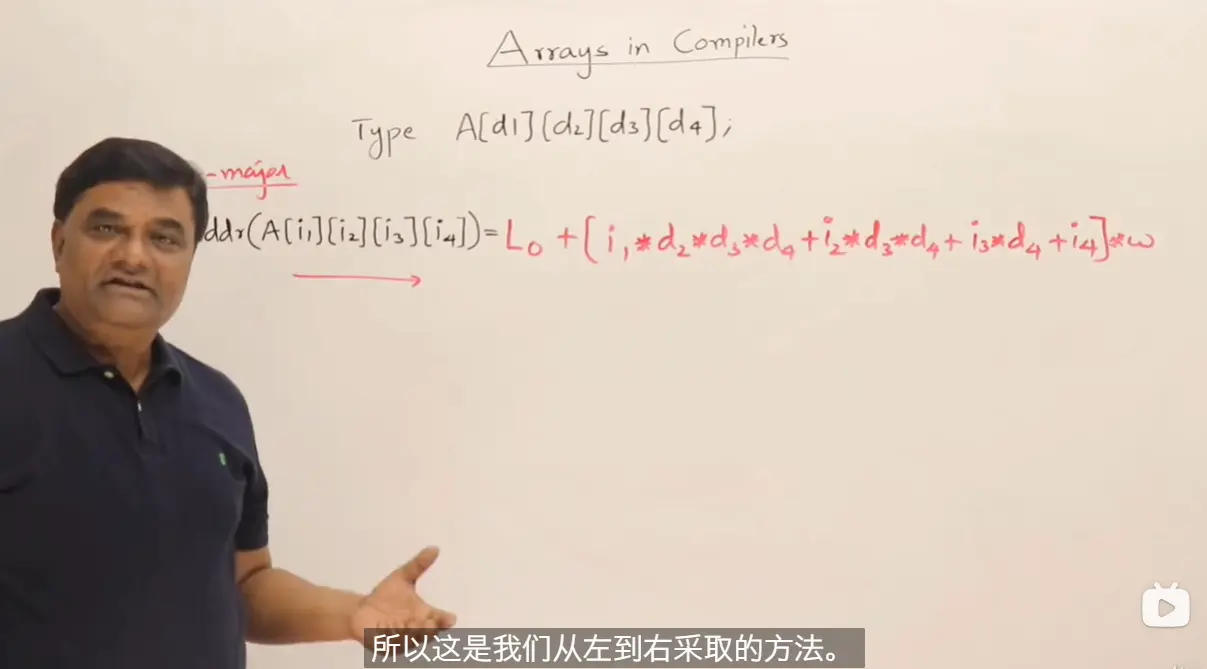 Arrays in Compilers
Type A[d1][d2][d3][d4];
-major
ddr(A[i1][i2][i3][i4])= L0 + [i1*d2*d3*d4+i2*d3*d4+i3*d4+i4]*w
所以这是我们从左到右采取的方法。